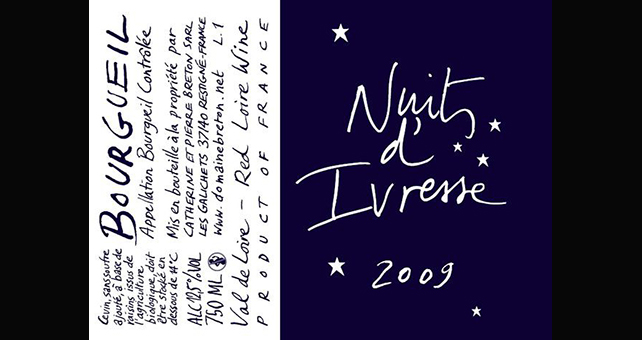 BOURGUEIL
Appellation Bourgueil Contrôlée
Mis en bouteille à la propriété par
CATHERINE ET PIERRE BRETON SARL
LES GALICHETS 37140 RESTIGNÉ-FRANCE
www.domainebreton.net L.1
Val de Loire - Red Loire Wine
PRODUCT OF FRANCE
Ce vin, sans soufre
ajouté, à base de
raisins issus de
l'agriculture
biologique, doit
être stocké en
dessous de 14°C
ALC 12,5 % VOL
750 ML
Nuits
d'
Ivresse
2009